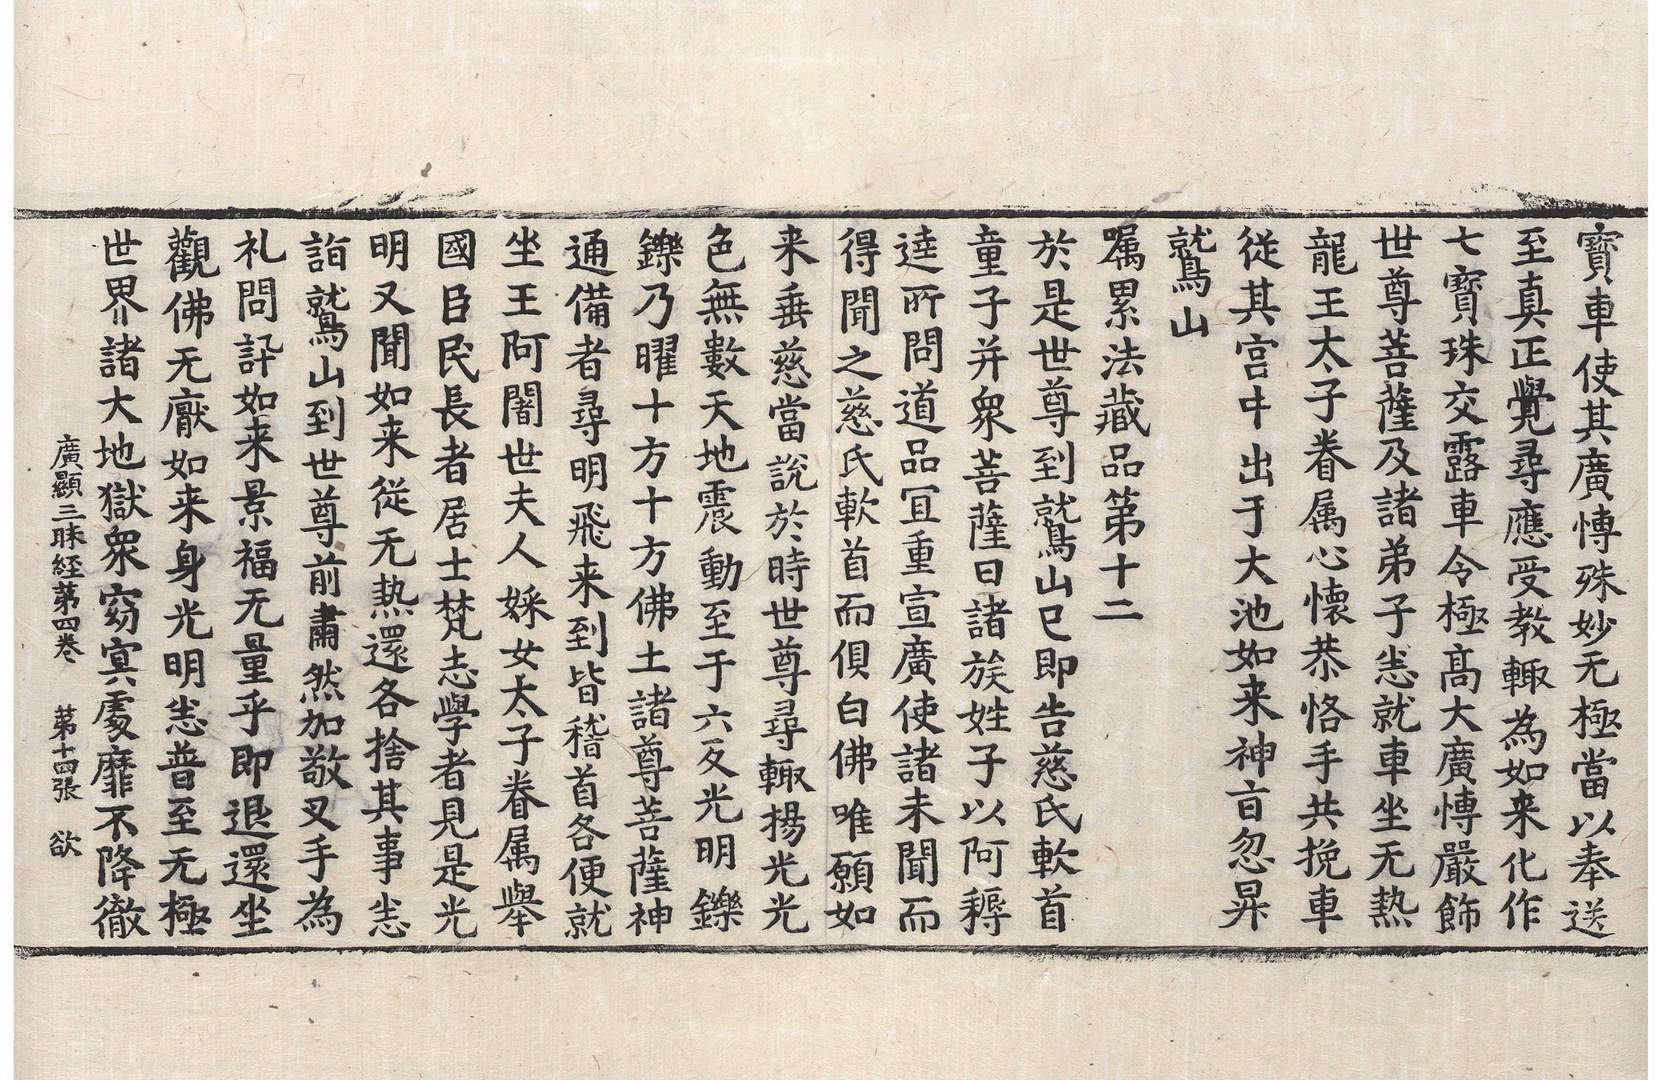 寶車使其廣愽殊妙无極當以奉送
至真正覺尋應受教輙為如来化作
七寶珠交露車令極高大廣愽嚴飾
世尊菩薩及諸弟子恙就車坐无熱
龍王太子眷属心懷恭恪手共挽車
從其宮中出于大池如来神㫖忽昇
鷲山
嘱累法藏品第十二
於是世尊到鷲山已即告慈氏軟首
童子并衆菩薩曰諸族姓子以阿耨
達所問道品冝重宣廣使諸未聞而
得聞之慈氏軟首而俱白佛唯願如
来垂慈當說於時世尊尋輙揚光光
色無數天地震動至于六反光明鑠
鑠乃曜十方十方佛土諸尊菩薩神
通備者尋明飛来到皆稽首各便就
坐王阿闍世夫人婇女太子眷属舉
國臣民長者居士梵志學者見是光
明又聞如来從无熱還各捨其事恙
詣就鷲山到世尊前肅然加敬叉手為
礼問訊如来景福无量乎即退還坐
觀佛无厭如来身光明恙普至无極
世界諸大地獄衆窈㝠處靡不降徹
廣顯三昧経苐四卷 苐十四張 欲